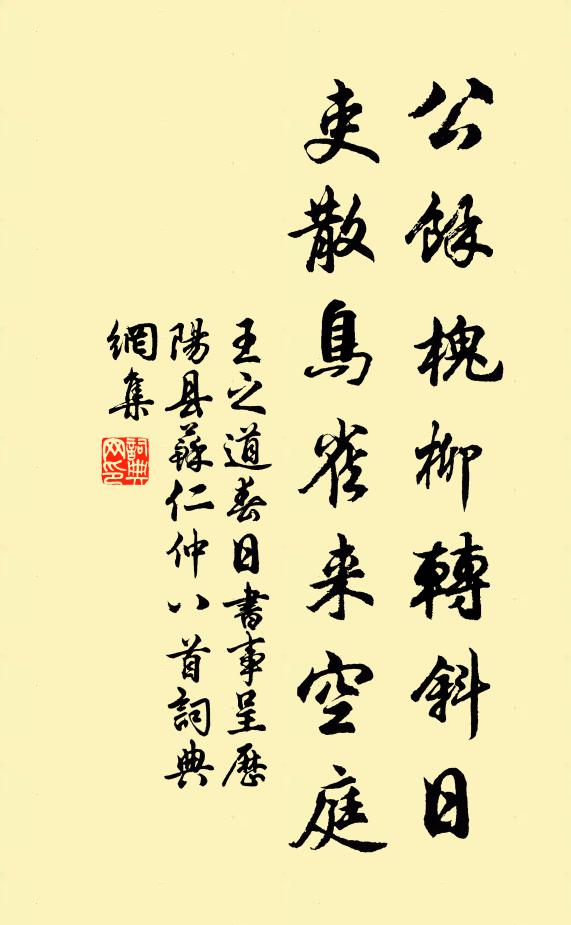 公餘槐柳轉斜日
吏散鳥雀来空庭
王之道春日書事呈歷
陽县蘇仁仲八首詞典
網集
詞典
网印